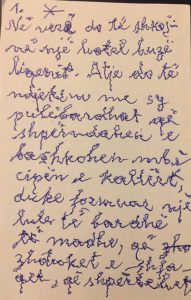 1.
Në verë do të shkoj
në një hotel buzë
liqenit. Atje do të
ndjekim me sy
pulëbardhat që
shpërndahen e
bashkohen mbi
cipën e kaltërt,
duke formuar një
lule të bardhë
të madhe, që
zhduket e shfa
qet, që shpërbëhet